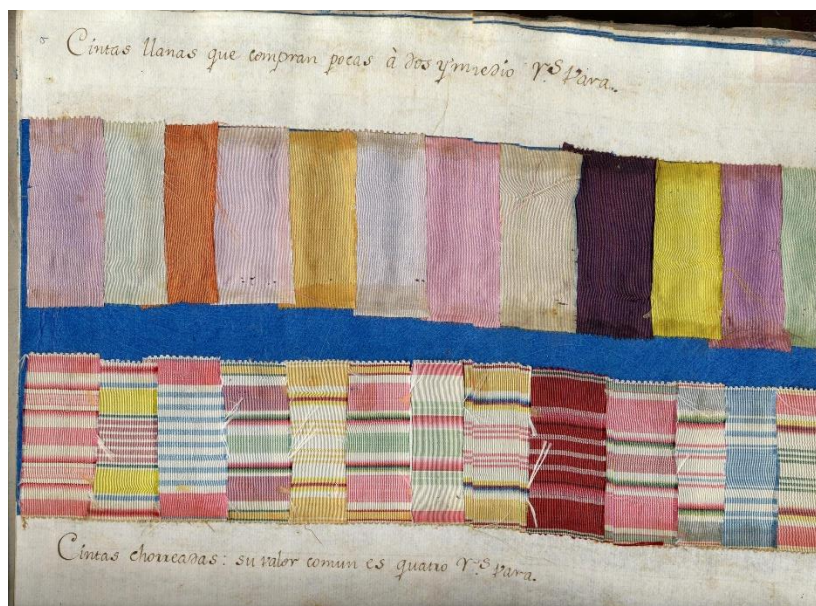 Cintas llanas que compran pocas à dos y medio r.s vara.
Cintas chorreadas: su valor comun es quatro r.s vara.